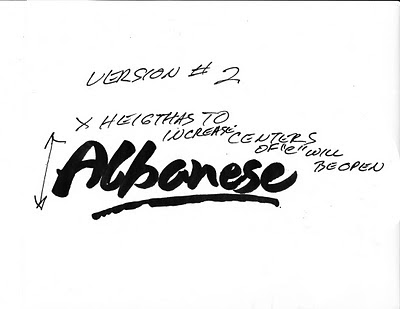 VERSION # 2
X HEIGTHAS TO
INCREASE. CENTERS
OF "e" WILL
BE OPEN
Albanese